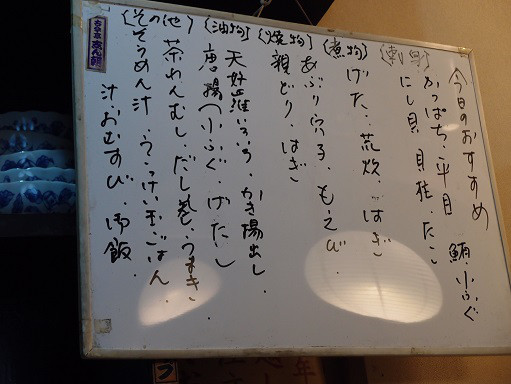 今日のおすすめ
鮪・小ふぐ
かっぱち・平目
にし貝 貝柱・たこ
{刺身}
{煮物}
げた・荒炊・はぎ
あぶり もえび
{焼物}
親どり・はぎ
{油物}
天ぷら いろいろ・かき揚出し
唐揚(小ふぐ・げた)
{その他}
茶わんむし・だし巻・うまき
そうめん汁・うこっけい玉ごはん
汁・おむすび・御飯